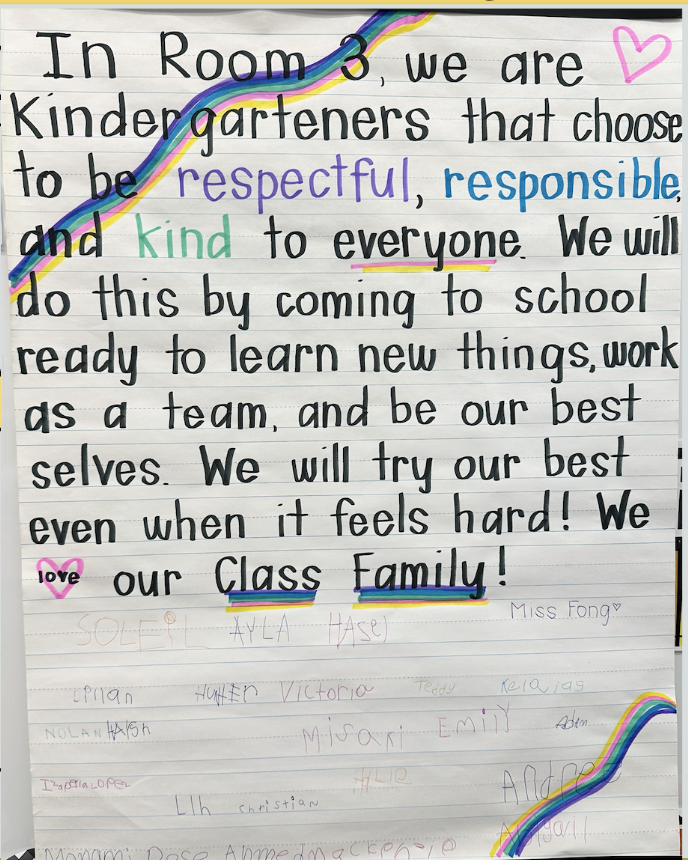 In Room 3, we are
Kindergarteners that choose
to be respectful, responsible,
and kind to everyone. We will
do this by coming to school
ready to learn new things, work
as a team, and be our best
selves. We will try our best
even when it feels hard! We
love our Class Family!
Miss Fong
SOLEIL AYLA
Victoria Teddy
NOLAN Misaki EMILY Aden
Christian Andre
Abigail
Monami Rose Ahmed mackenzie